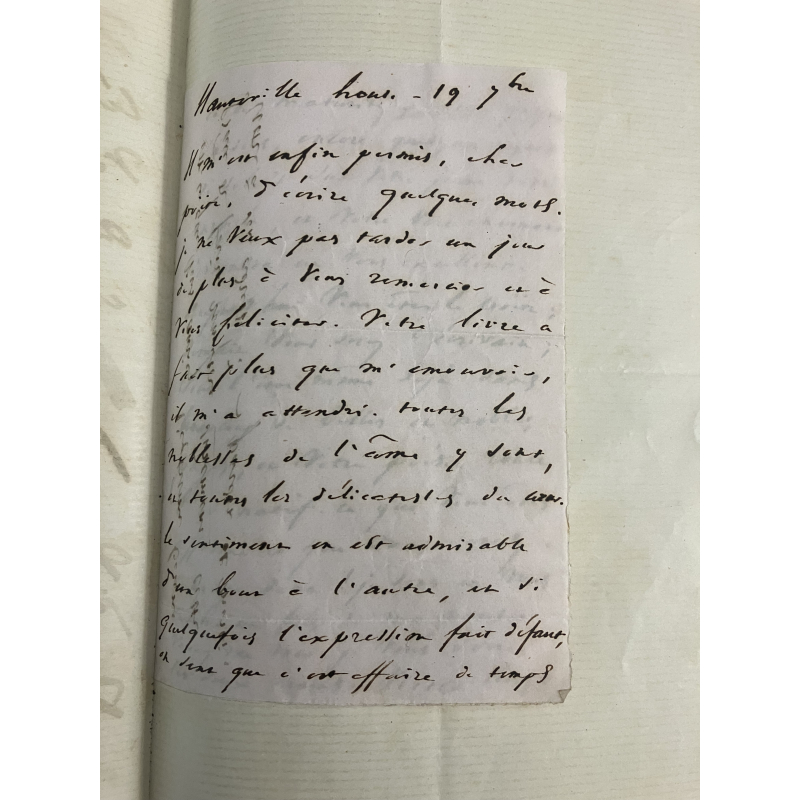 Hauteville house - 19 7bre
Il m'est enfin permis, cher
poète, d'écrire quelques mots.
je ne veux pas tarder un jour
de plus à vous remercier et à
vous féliciter. Votre livre a
fait plus que m'émouvoir,
il m'a attendri. toutes les
noblesses de l'âme y sont,
et toutes les délicatesses du cœur.
le sentiment en est admirable
d'un bout à l'autre, et si
quelquefois l'expression fait défaut,
on sent que c'est affaire de temps